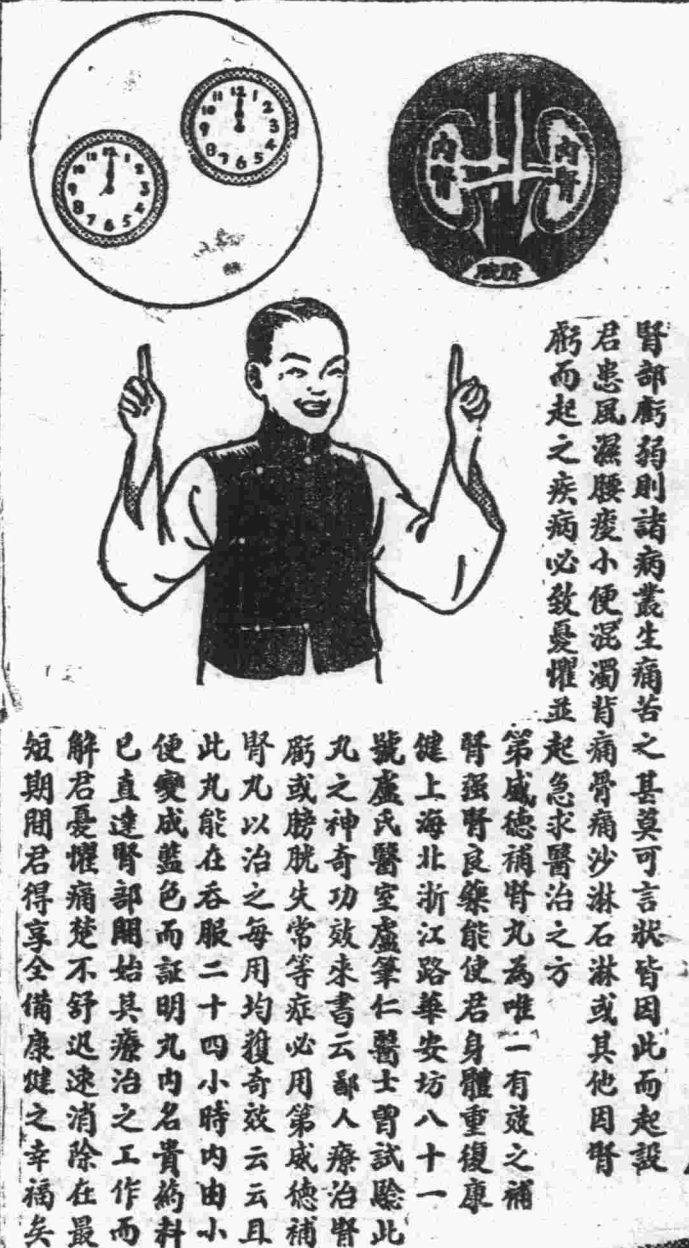 12 1 2 3 4 5 6 7 8 9 10 11
12 1 2 3 4 5 6 7 8 9 10 11
內腎
內腎
膀胱
腎部虧弱則諸病叢生痛苦之甚莫可言狀皆因此而起設
君患風濕腰痠小便混濁背痛骨痛沙淋石淋或其他因腎
虧而起之疾病必致憂懼並起急求醫治之方
第威德補腎丸為唯一有效之補
腎强腎良藥能使君身體重復康
健上海北浙江路華安坊八十一
號盧氏醫室盧筆仁醫士曾試驗此
丸之神奇功效來書云鄙人療治腎
虧或膀胱失常等症必用第威德補
腎丸以治之每用均獲奇效云云且
此丸能在吞服二十四小時內由小
便變成藍色而証明丸內名貴葯料
已直達腎部開始其療治之工作而
解君憂懼痛楚不舒迅速消除在最
短期間君得享全備康健之幸福矣